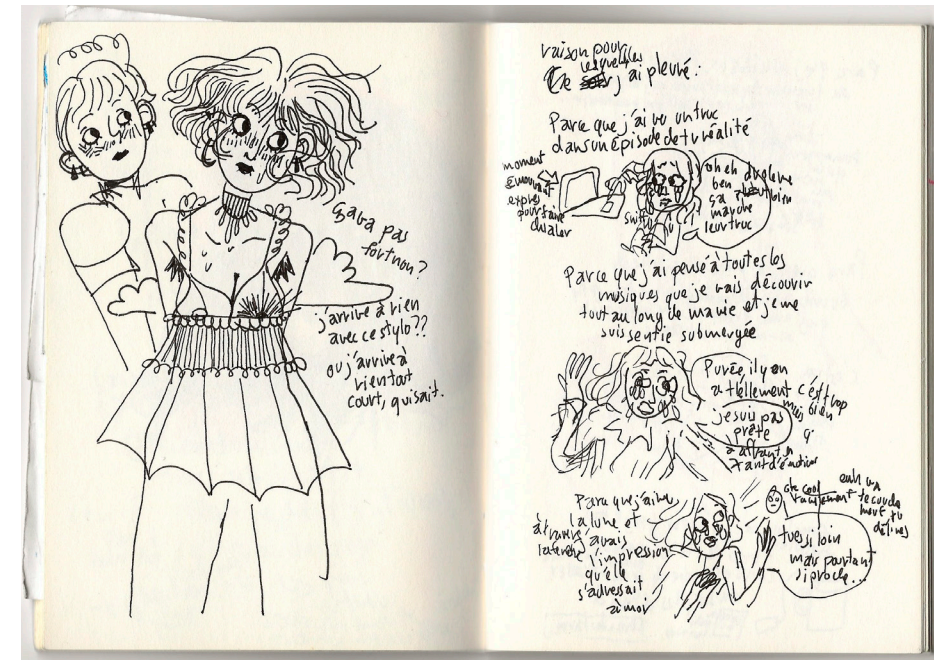 ça va pas
fort non ?
j'arrive à rien
avec ce stylo ??
ou j'arrive à
rien tout
court, qui sait.
raison pour
lesquelles
j'ai pleuré :
Parce que j'ai vu un truc
dans un épisode de tv réalité
moment
émouvant
exprès
pour faire
chialer
oh eh
ben
ça
marche
leur truc
Parce que j'ai pensé à toutes les
musiques que je vais découvrir
tout au long de ma vie et je me
suis sentie submergée
Purée, il y en
a tellement c'est trop
mais bien
je suis pas
prête
à affronter
tant d'émotion
Parce que j'ai vu
la lune et
à travers j'avais
la fenêtre l'impression
qu'elle
s'adressait
à moi
ok cool
euh on
te connaît
meuf tu
délires
tu es si loin
mais pourtant
si proche...